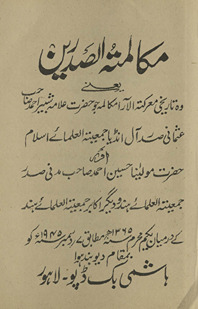 مکالمتہ الصدرین
یعنے
وہ تاریخی معرکتہ الآرا مکالمہ جو حضرت علامہ شبیر احمد صاحب
عثمانی صدر آل انڈیا جمعیتہ العلمائے اسلام
اور
حضرت مولینا حسین احمد صاحب مدنی صدر
جمعیتہ العلمائے ہند و دیگر اکابر جمعیتہ العلمائے ہند
کے درمیان یکم محرم ۱۳۶۵ھ مطابق ۷ دسمبر ۱۹۴۵ء کو
بمقام دیوبند ہوا
ہاشمی بک ڈپو - لاہور